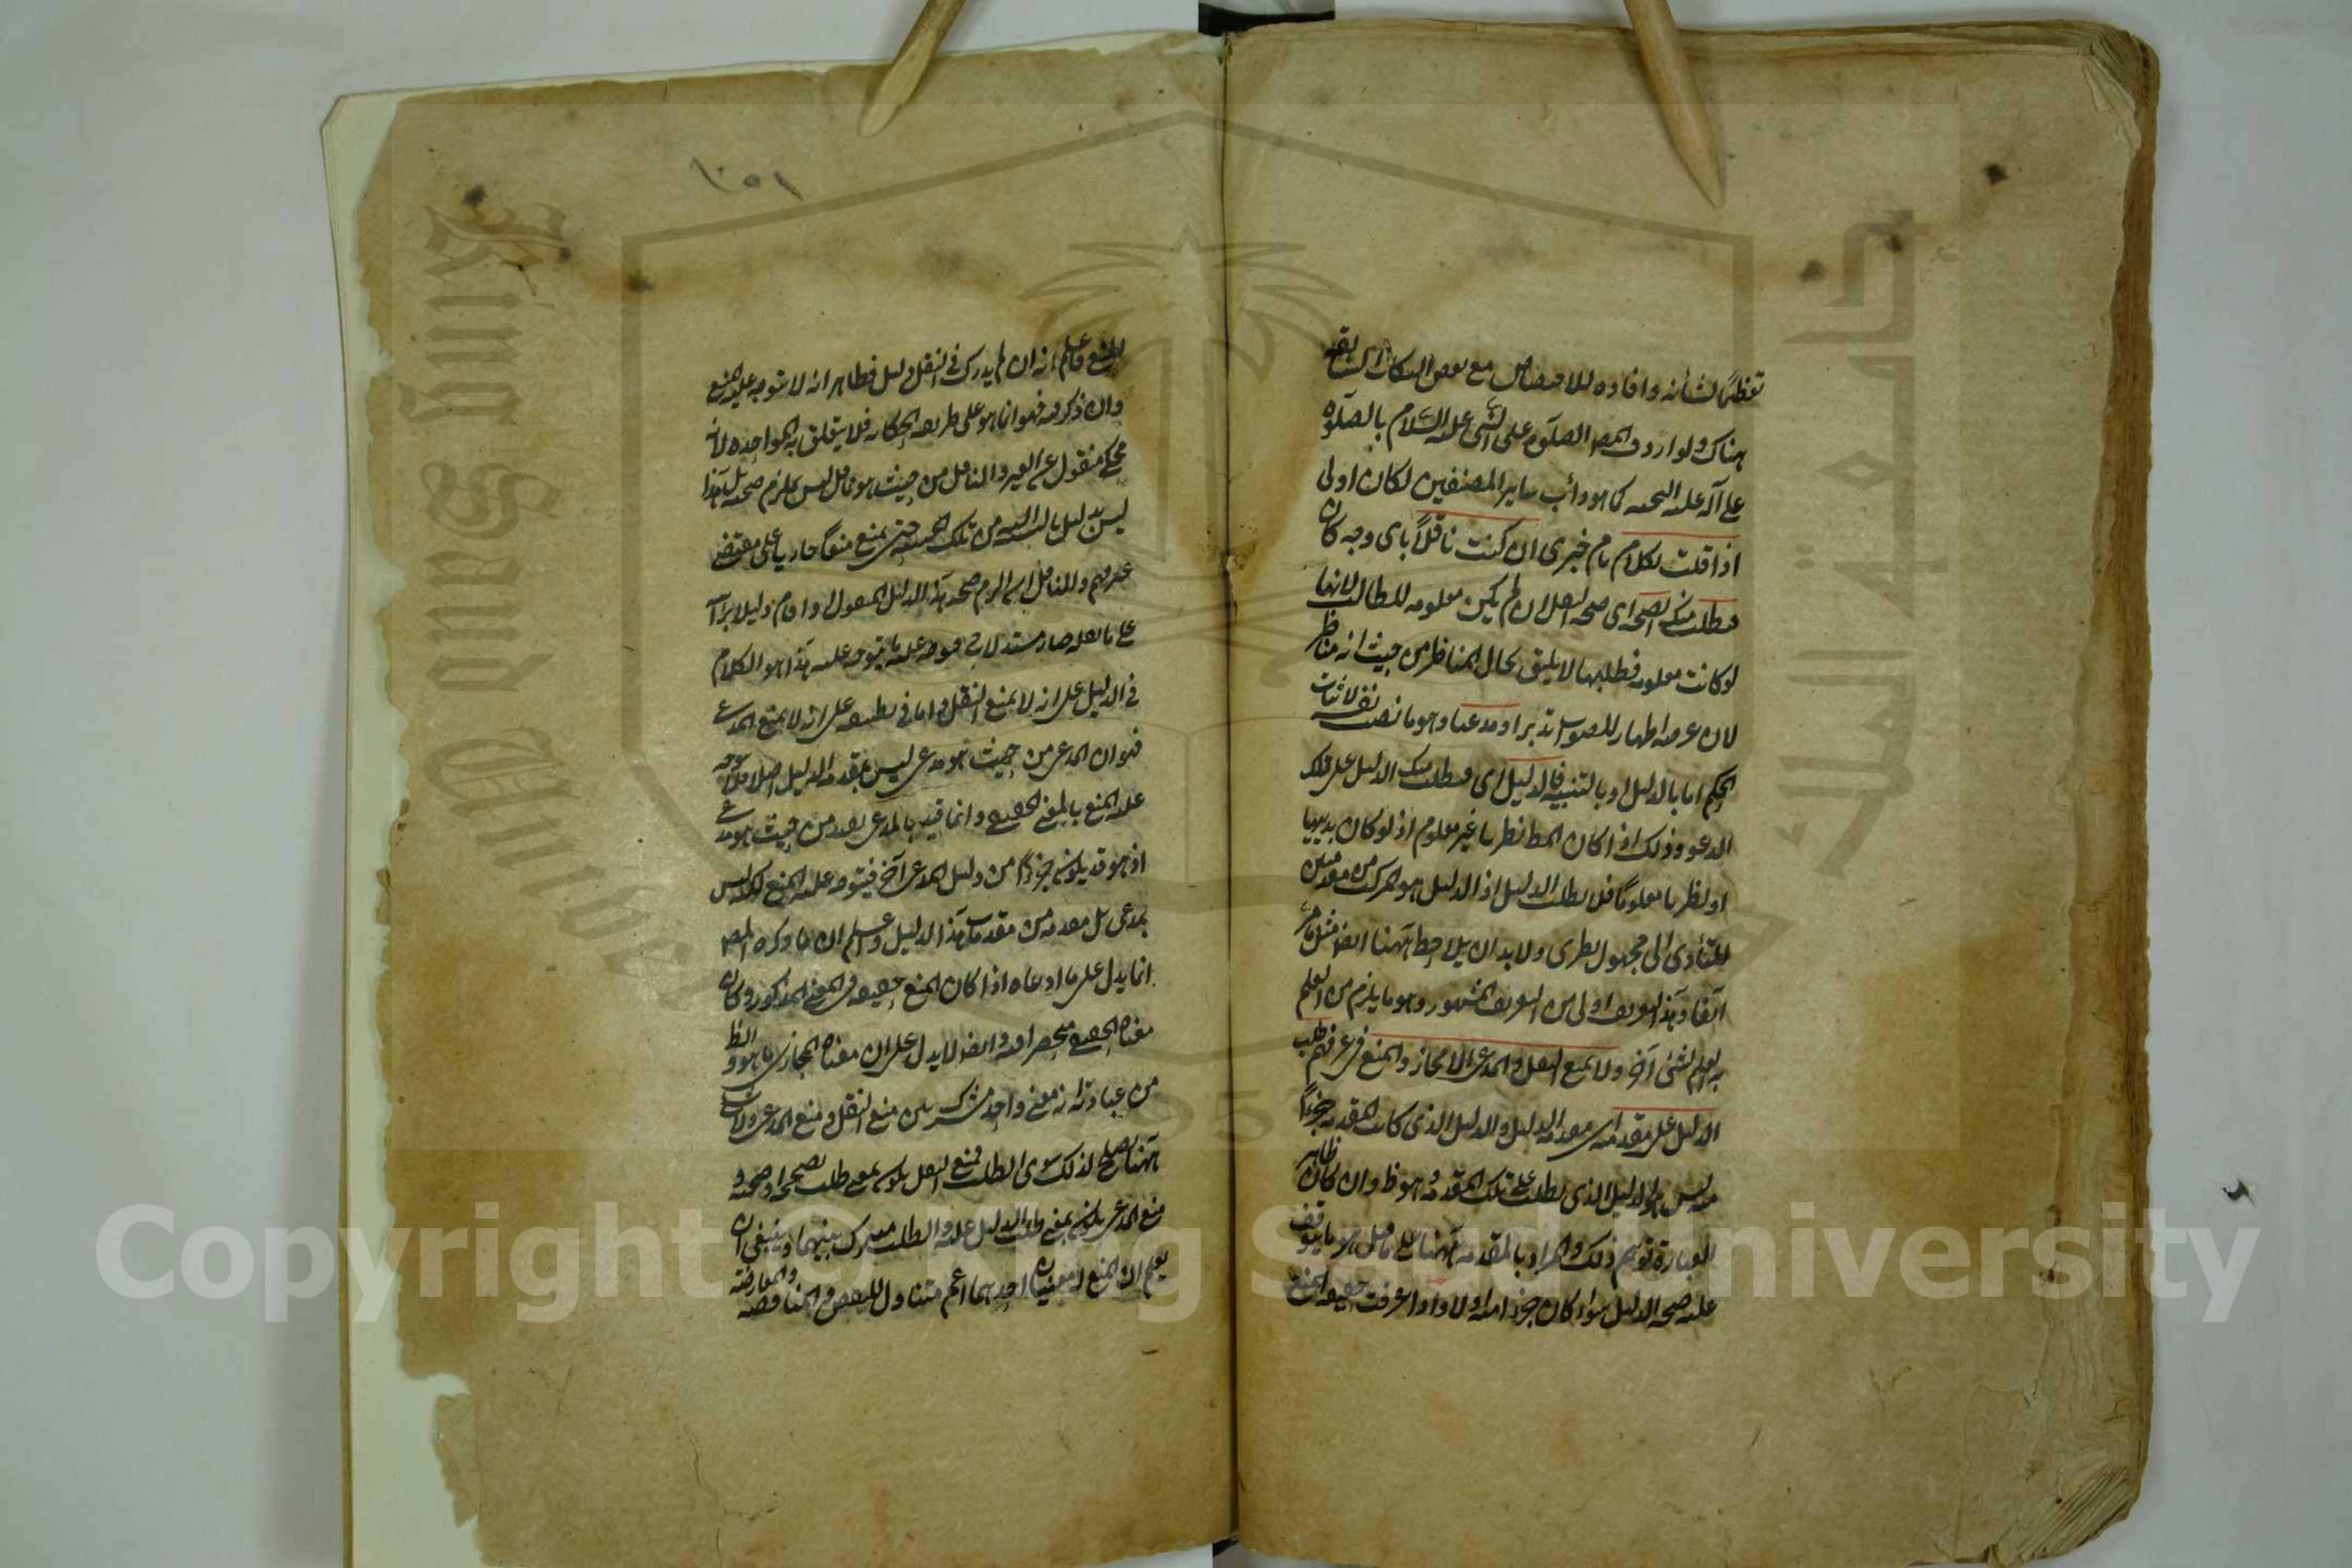 تعظيمًا لشأنه وافادة للاختصاص مع بعض النكات السابقة
هناك ولو اردف المص الصلوة على النبي عليه السلام بالصلوة
على آله عليه التحية كما هو دأب ساير المصنفين لكان اولى
اذا قلت بكلام تام خبرى ان كنت ناقلاً باى وجه كان
فيطلب منك الصحة اى صحة النقل ان لم يكن معلومة للطالب لانها
لو كانت معلومة فطلبها لا يليق بحال المناظر من حيث انه مناظر
لان غرضه اظهار للصواب تدبر او مدعيا وهو ما نصب نفسه لاثبات
الحكم اما بالدليل او بالتنبيه فالدليل اى فيطلب منك الدليل على تلك
الدعوى وذلك اذا كان المط نظريا غير معلوم اذ لو كان بديهيا
او نظريا معلومًا فلا يطلب الدليل اذ الدليل هو المركب من مقدمتين
للتأدى الى مجهول نظرى ولا بد ان يلاحظ ههنا ايضا مثل ما مر
آنفا وهذا التعريف اولى من التعريف المشهور وهو ما يلزم من العلم
به العلم بشئ آخر ولا يمنع النقل والمدعى الا مجازا والمنع فى عرفهم طلب
الدليل على مقدمة اى مقدمة الدليل والدليل الذى كانت المقدمة جزءًا
منه ليس هو الدليل الذى يطلب على تلك المقدمة وهو ظ وان كان ظاهر
العبارة توهم ذلك والمراد بالمقدمة ههنا على ما قيل هو ما يتوقف
عليه صحة الدليل سواء كان جزءا منه اولا واذا عرفت حقيقة المنع
١٠٥١
للمنع فاعلم انه ان لم يدرك فى النقل دليل فظاهر انه لا يتوجه عليه المنع
وان ذكر فيه فهو انما هو على طريقة الحكاية فلا يتعلق به المواخذة لانه
محكى منقول عن الغير والناقل من حيث هو ناقل ليس يلزم صحته بل هذا
ليس بدليل بالنسبة من تلك الحيثية حتى يمنع منعًا جاريا على مقتضى
عرفهم والناقل ان التزم صحة هذا الدليل المنقول او اقام دليلا برأسه
على ما نقله صار مستدلا فيتوجه عليه ما يتوجه عليه هذا هو الكلام
فى الدليل على انه لا يمنع النقل واما فى تطبيقه على انه لا يمنع المدعى
فهو ان المدعى من حيث هو مدعى ليس بمقدمة الدليل اصلا فلا يتوجه
عليه المنع بالمعنى الحقيقى وانما قيد بالمدعى بقيد من حيث هو مدعى
اذ هو قد يكون جزءًا من دليل المدعى آخر فيتوجه عليه المنع لكنه ليس
بمدعى بل مقدمة من مقدمات هذا الدليل واعلم ان ما ذكره المص
انما يدل على ما ادعاه اذا كان المنع حقيقة فى المعنى المذكور وكان
معناه الحقيقى منحصرا فيه وايضا لا يدل على ان معناه المجازى ما هو والظ
من عبارته انه معنى واحد مشترك بين منع النقل ومنع المدعى ولا شئ
ههنا يصلح لذلك سوى الطلب فمنع النقل يكون بمعنى طلب تصحيحه او صحته و
منع المدعى يكون بمعنى طلب الدليل عليه والطلب مشترك بينهما وينبغى ان
يعلم ان المنع له معنيان احدهما اعم متناول للنقض والمناقضة والمعارضة
Copyright © King Saud University
King Saud University